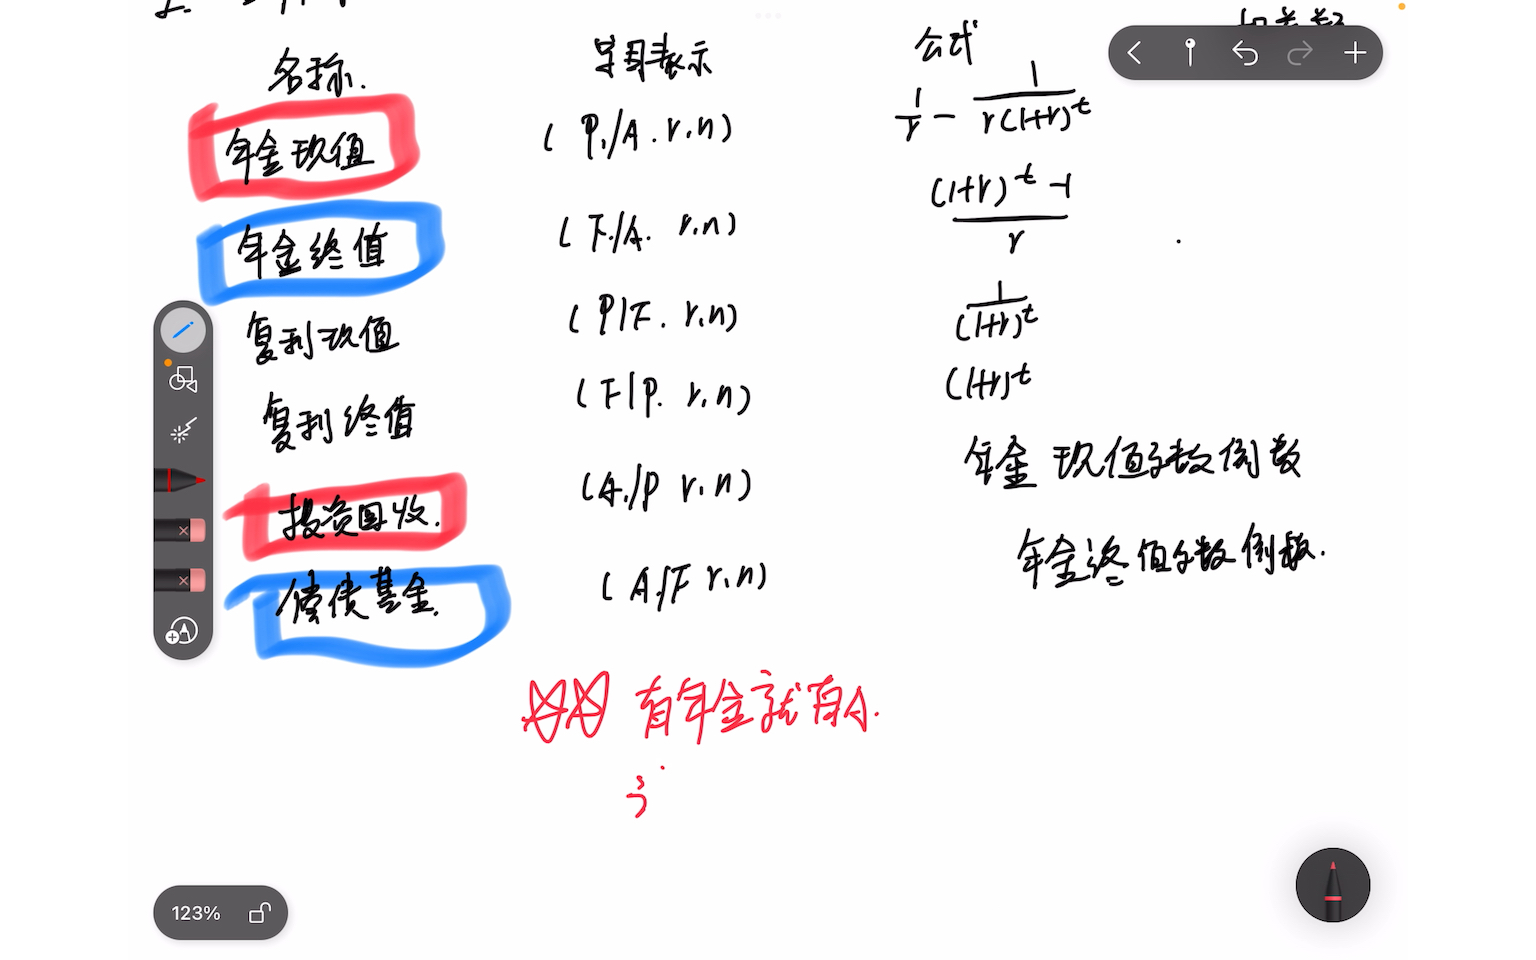 名称. 字母表示 公式
年金现值 (P/A.r.n) 1/r - 1/r(1+r)^t
年金终值 (F/A. r.n) (1+r)^t -1/r
复利现值 (P/F. r.n) 1/(1+r)^t
复利终值 (F/P. r.n) (1+r)^t
投资回收. (A/P r.n) 年金现值系数倒数
偿债基金. (A/F r.n) 年金终值系数倒数.
有年金就有A.
123%